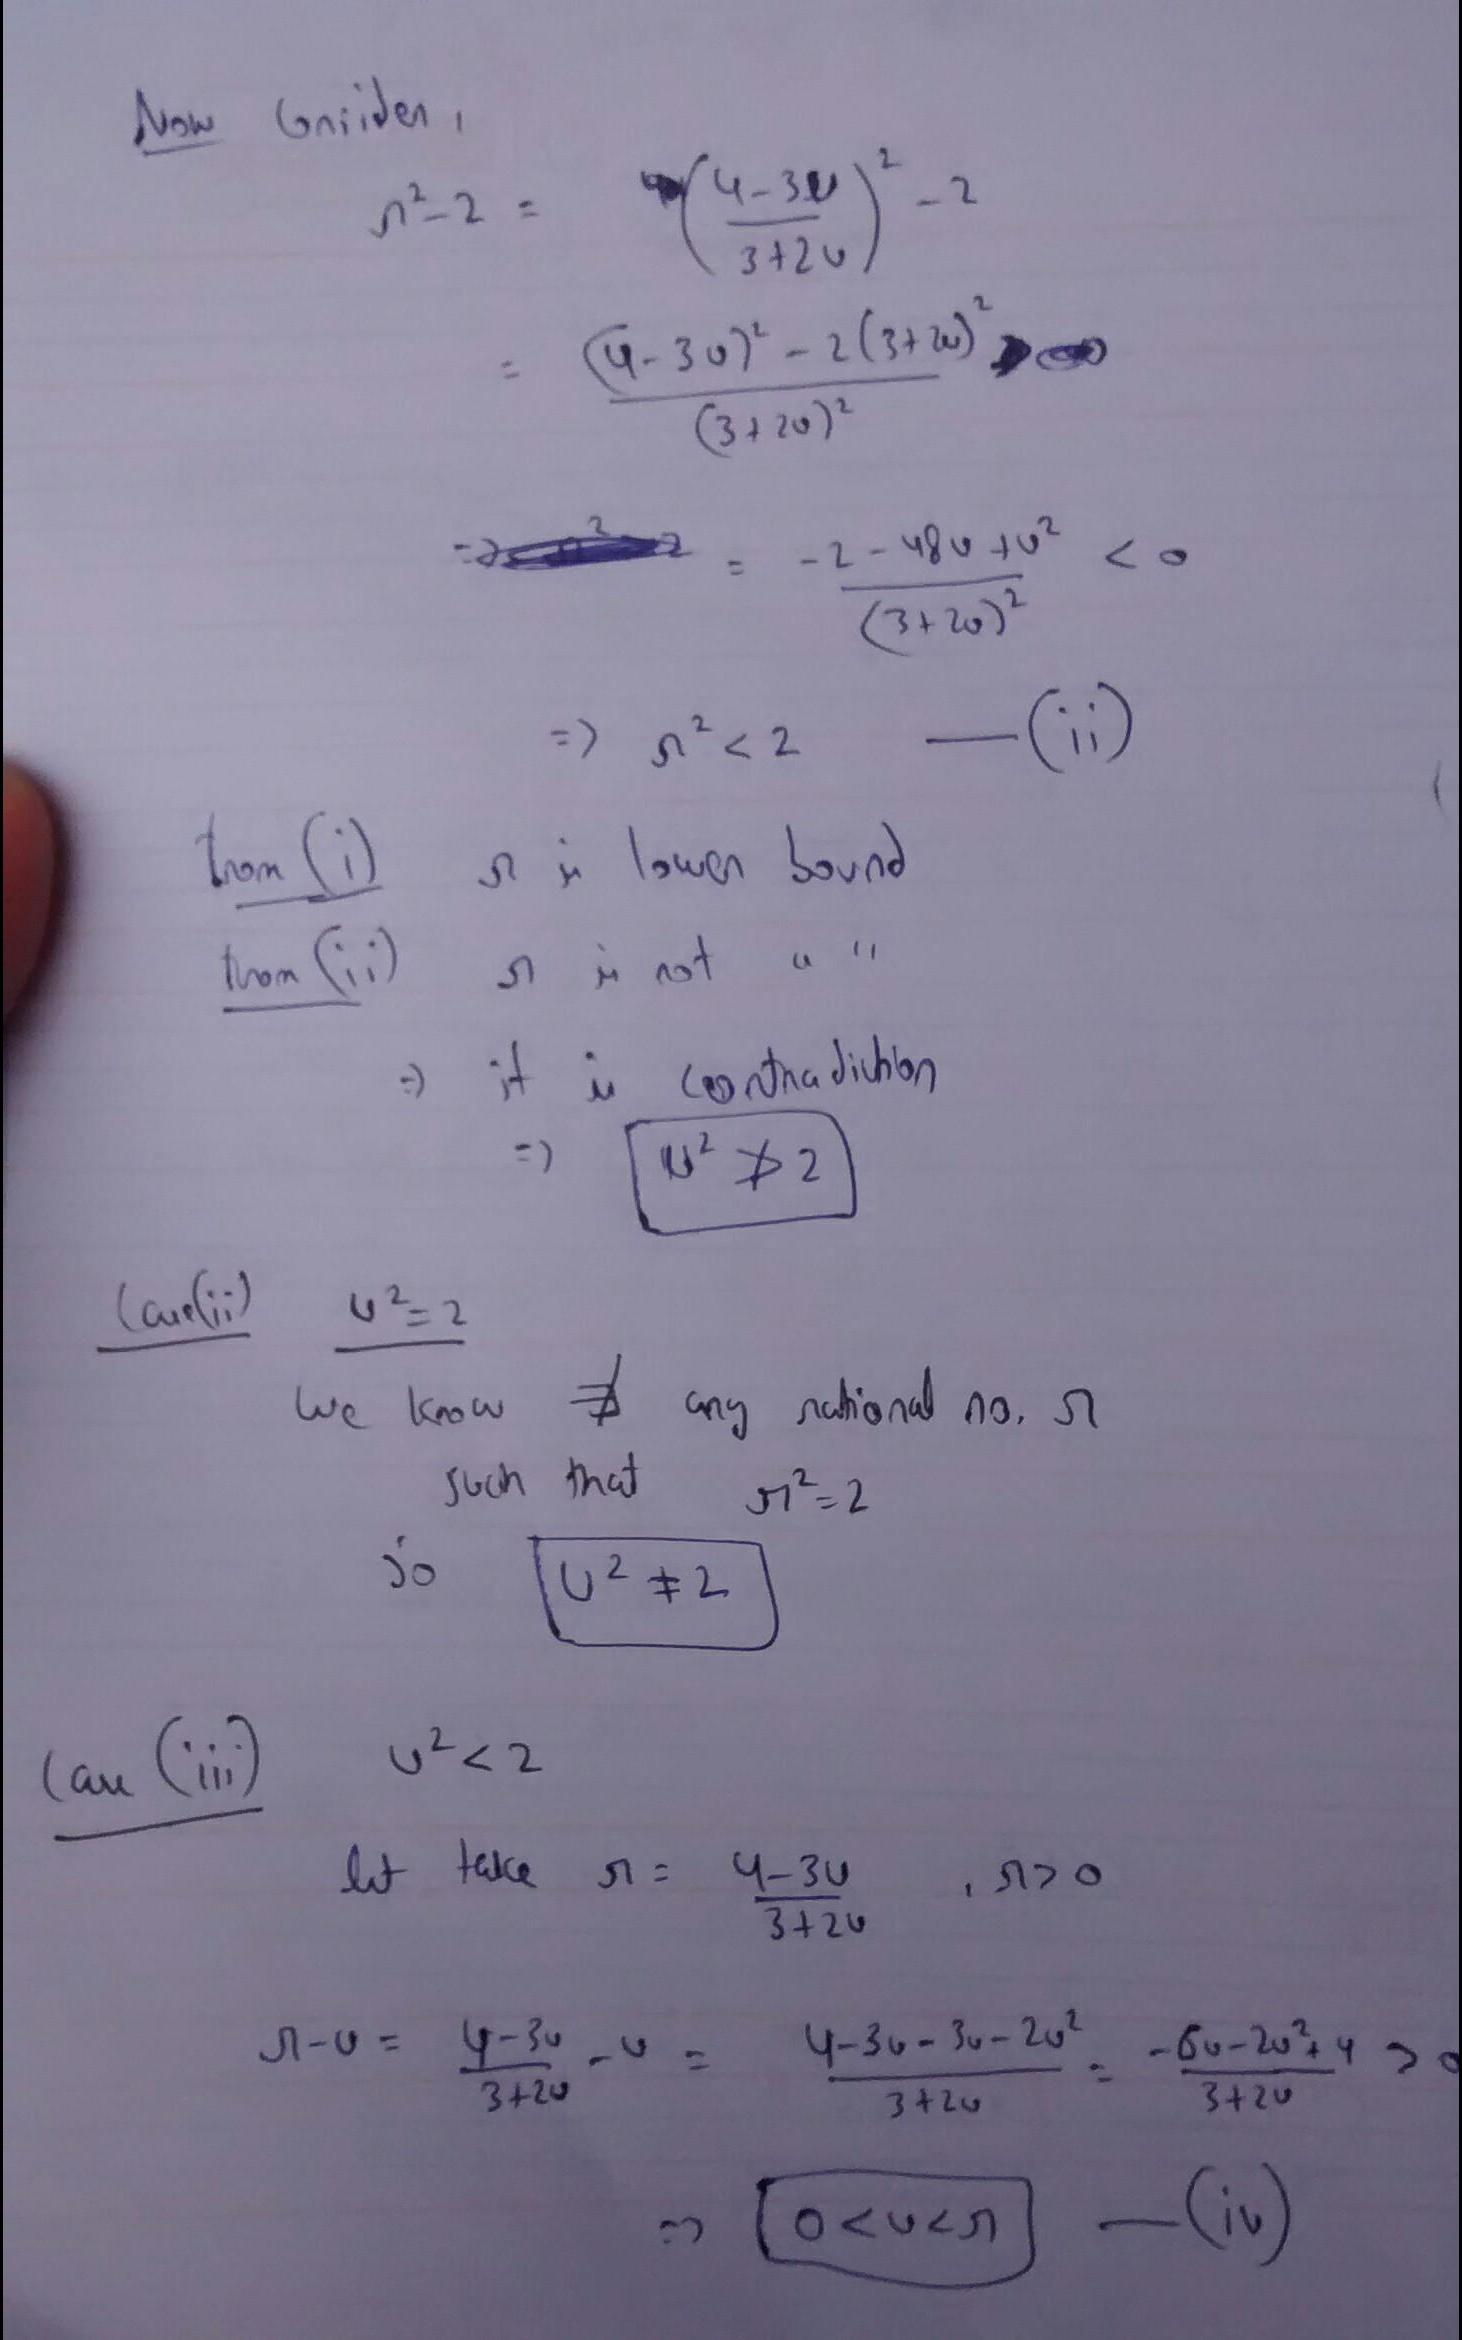 Now Consider,
r²-2 = (4-3u/3+2u)² - 2
= (4-3u)² - 2(3+2u)² / (3+2u)²
= -2-48u+u² / (3+2u)² < 0
=> r² < 2 —(ii)
from (i) r is lower bound
from (ii) r is not " "
=> it is contradiction
=> u² ≯ 2
Case(ii) u²=2
We know ∄ any rational no. r
such that r²=2
so u² ≠ 2
Case (iii) u²<2
let take r = 4-3u/3+2u , r>0
r-u = 4-3u/3+2u - u = 4-3u-3u-2u²/3+2u = -6u-2u²+4/3+2u > 0
=> 0<u<r —(iv)